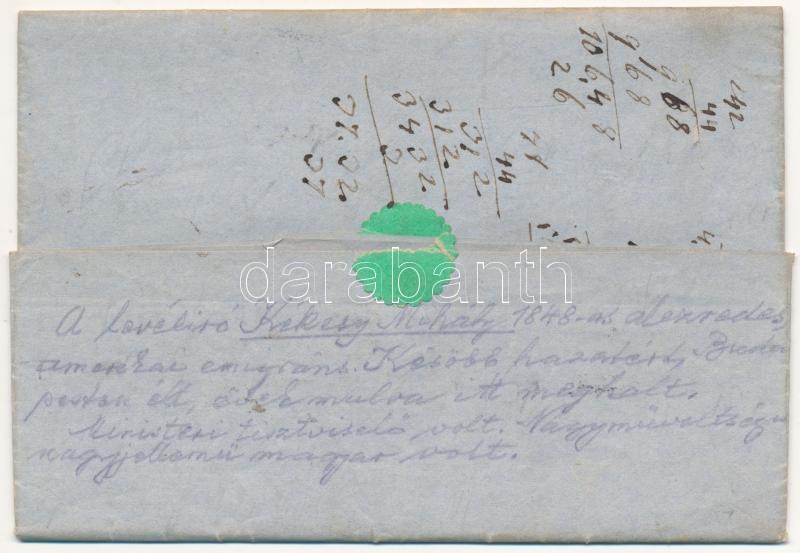 142
44
968
968
10648
26
44
312
312
3432
2
37.32
37
darabanth
A levélíró Kékesy Mihály 1848-as alezredes,
amerikai emigráns. Később hazatért, Buda
pesten élt, évek mulva itt meghalt.
Ministeri tisztviselő volt. Nagyműveltségű
nagyjellemű magyar volt.